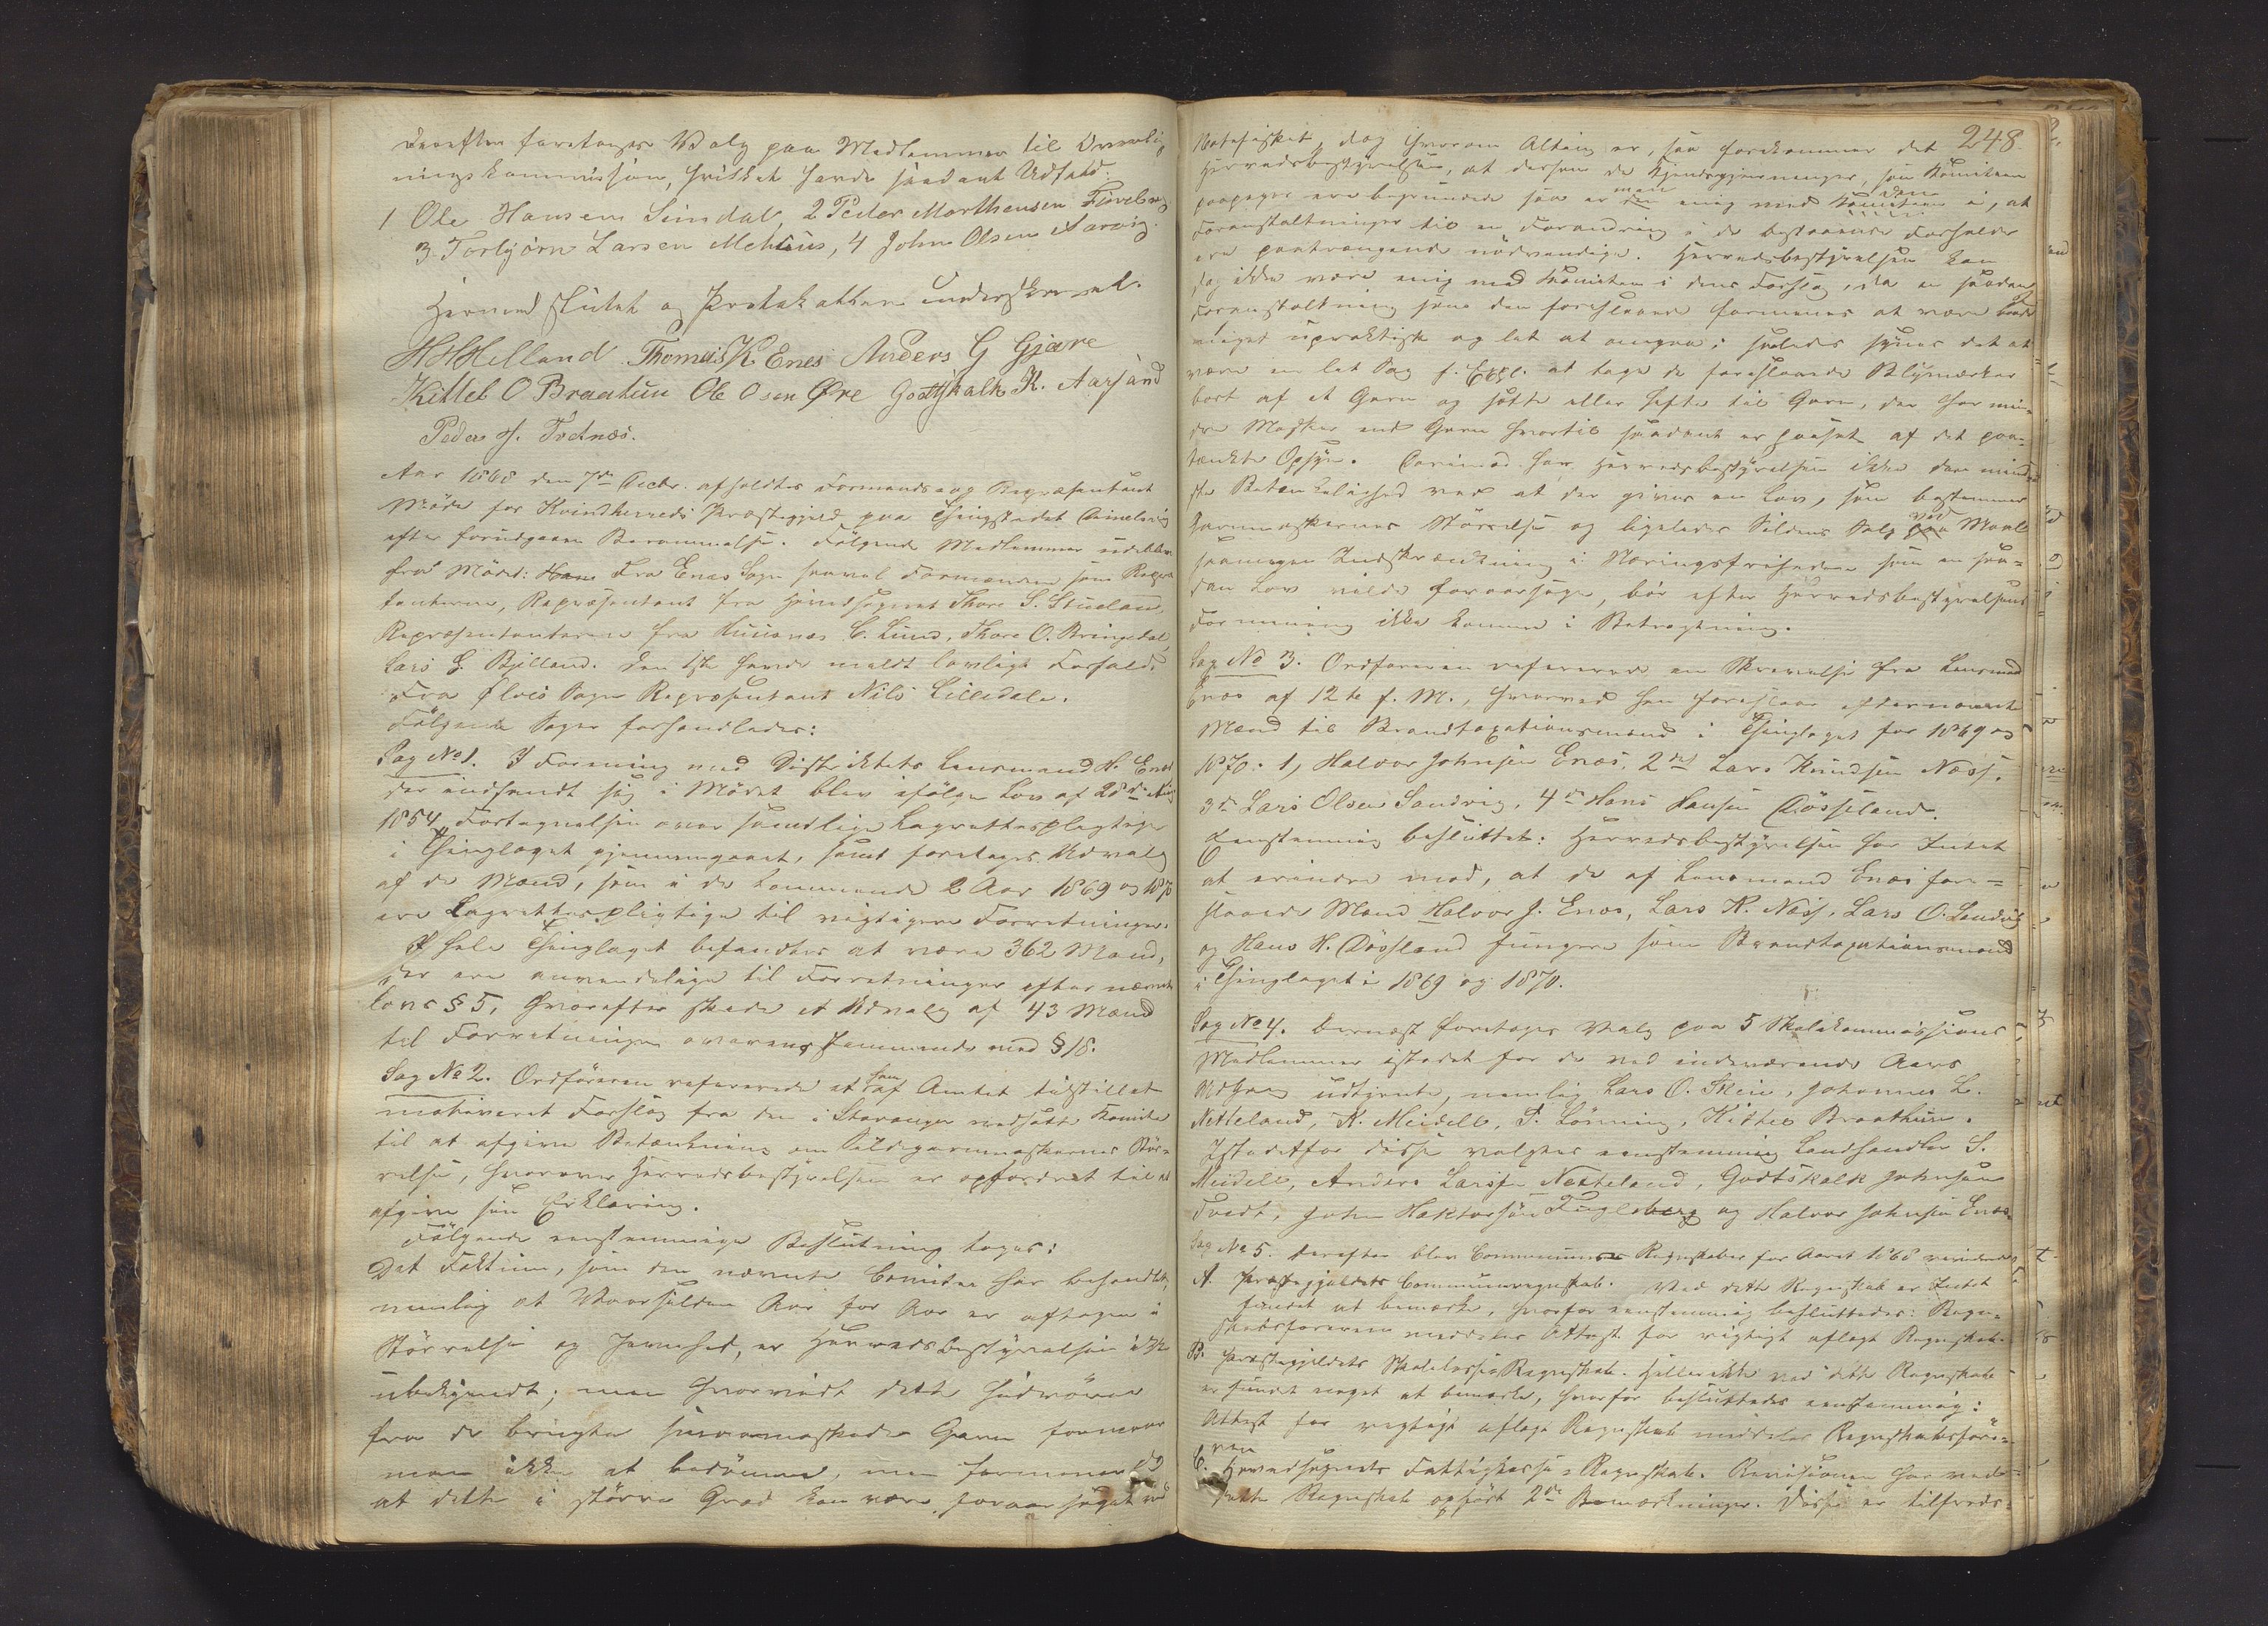 derefter foretoges Valg paa Medlemmer til Overlig
ningskommission, hvilket havde saadant Udfald:
1 Ole Hansen Sundal, 2 Peder Morthensen
3. Torbjörn Larsen Mehuus, 4 John Olsen Aarvig.
Hermed sluttet og Protokollen underskrevet.
HHHelland Thomas K. Enes Anders G Gjære
Kittel O Braatun Ole Osen Øre Godtskalk K. Aarsand
Peder J. Tvetnæs.
Aar 1868 den 7de Decbr. afholdtes Formands- og Repræsentant
Möde for Kvindherreds Præstegjeld paa Thingstedet
efter forudgaaen Berammelse. Følgende Medlemmer udeblev
fra Mödet: Fra Enæs Sogn saavel Formændene som Repræ
tanterne, Repræsentant fra Hovedsognet Thore S.
Repræsentanterne fra Huusnæs C. Lund, Thore O. Bringedal,
Lars G. Bjelland. Den 1ste havde meldt lovligt Forfald.
Fra Ølvis Sogn Repræsentant Nils Lilledale.
Følgende Sager forhandledes:
Sag No 1. I Forening med Distriktets Lensmand H. Enæs
der indfandt sig i Mödet blev ifölge Lov af 28de Aug
1854 Fortegnelsen over samtlige Lagrettespligtige
i Thinglaget gjennemgaaet, samt foretages Udvalg
af de Mænd, som i de kommende 2 Aar 1869 og 1870
ere Lagrettespligtige til vigtigere Forretninger.
I hele Thinglaget befandtes at være 362 Mand,
der ere anvendelige til Forretninger efter nævnte
Lovs § 5, hvorefter skede et Udvalg af 43 Mand
til Forretninger overensstemmende med § 18.
Sag No 2. Ordföreren refererede et fra af Amtet tilstillet
motiveret Forslag fra den i Stavanger nedsatte Komite
til at afgive Betænkning om Sildegarnmaskernes Stör-
relse, hvorover Herredsbestyrelsen er opfordret til at
afgive sin Erklæring.
Følgende eenstemmige Beslutning toges:
Det Faktum, som den nævnte Comitee har behandlet,
nemlig at Vaarsilden Aar for Aar er aftagen i
Störrelse og Jevnhed, er Herredsbestyrelsen ikke
ubekjendt; men hvorvidt dette hidrörer
fra de brugte smaamaskede Garn formaar
man ikke at bedömme, men formener dog
at dette i större Grad kan være foraarsaget ved
248.
Notfiskeri, dog hvorom Alting er, saa forekommer det
Herredsbestyrelsen, at dersom de Kjendsgjerninger, som Komiteen
paapeger ere begrundede saa er man enig med den i, at
Foranstaltninger til en Forandring i de bestaaende Forholde
ere paatrængende nödvendige. Herredsbestyrelsen kan
dog ikke være enig med Komiteen i dens Forslag, da en saadan
Foranstaltning som den foreslaaede formenes at være baade
meget upraktisk og let at omgaa; saaledes synes det at
være en let Sag f. Expl. at tage de foreslaaede Blymærker
bort af et Garn og sætte eller hefte til Garn, der har min-
dre Masker end Garn hvortil saadant er passet af det paa-
tænkte Opsyn. Derimod har Herredsbestyrelsen ikke den mind-
ste Betænkelighed ved at der gives en Lov, som bestemmer
Garnmaskernes Störrelse og ligeledes Sildens Salg ved Maal
saamegen Indskrænkning i Næringsfriheden som en saa-
dan Lov vilde foraarsage, bör efter Herredsbestyrelsens
Formening ikke komme i Betragtning.
Sag No 3. Ordföreren refererede en Skrivelse fra Lensmand
Enæs af 12te f. M., hvorved han foreslaar efternævnte
Mænd til Brandtaxationsmænd i Thinglaget for 1869 og
1870: 1, Halvor Johnsen Enæs. 2de Lars Knudsen Næss.
3de Lars Olsen Sandvig, 4de Hans Hansen Dösseland.
Eenstemmig besluttet: Herredsbestyrelsen har Intet
at erindre mod, at de af Lensmand Enæs fore-
slaaede Mænd Halvor J. Enæs, Lars K. Næss, Lars O. Sandvig
og Hans H. Dössland fungere som Brandtaxationsmænd
i Thinglaget i 1869 og 1870.
Sag No 4. Dernæst foretoges Valg paa 5 Skolekommissions
Medlemmer istedet for de ved indeværende Aars
Udgang udtrædende, nemlig Lars O. Skeie, Johannes L.
Netteland, K. Meidell, P. Lönning, Kittel Braathun.
Istedetfor disse valgtes eenstemmig Landhandler S.
Meidell, Anders Larsen Netteland, Godtskalk Johnsen
Tvedt, John Haktorsön Fugleberg og Halvor Johnsen Enæs.
Sag No 5. Derefter blev Communens Regnskaber for Aaret 1868 reviderede
A. Præstegjeldets Communeregnskab. Ved dette Regnskab er Intet
fundet at bemærke, hvorfor eenstemmig besluttedes: Regn-
skabsföreren meddeles Attest for rigtigt aflagt Regnskab.
B. Præstegjeldets Skolekasse Regnskab. Heller ikke ved dette Regnskab
er fundet noget at bemærke, hvorfor besluttedes eenstemmig:
Attest for rigtigt aflagt Regnskab meddeles Regnskabsföre-
ren
C. Hovedsognets Fattigkasse Regnskab. Revisionen har ved
dette Regnskab opført 2de Bemærkninger. Disse er tilfreds-